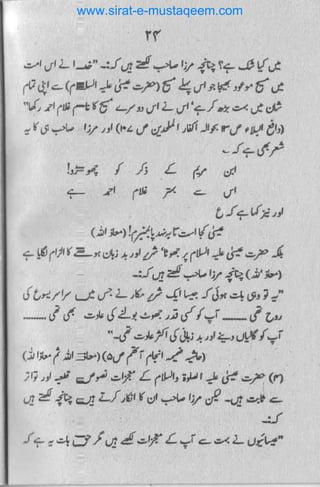 www.sirat-e-mustaqeem.com
۲۴
میں کیا شک ہے؟ چنانچہ مرزا صاحب لکھتے ہیں :۔ "خدا نے اس امت
میں مسیح موعود بھیجا جو اس پہلے مسیح (حضرت عیسیٰ علیہ السلام) سے اپنی تمام
شان میں بہت بڑھ کر ہے' اس نے اس دوسرے مسیح کا نام غلام احمد رکھا"
(دافع البلاء ص ۱۳ بحوالہ اکفار الملحدین ص ۱۰۷) اور مرزا صاحب ہی کا یہ
شعر بھی ہے کہ ۔
ابن مریم کے ذکر کو چھوڑو!
اس سے بہتر غلام احمد ہے
اور نیز کہا ہے کہ ع
عیسیٰ کجا است تا بنہد پا بمنبرم! (معاذ اللہ)
بلکہ حضرت عیسیٰ علیہ السلام پر جھوٹا' شریر اور بد زبان ہونے کا الزام لگایا ہے
(معاذ اللہ) چنانچہ مرزا صاحب لکھتے ہیں :۔
"یہ تو وہی بات ہوئی کہ جیسا ایک شریر مکار نے جس میں سراسر یسوع کی
روح تھی ......... آپ کو کسی قدر جھوٹ بولنے کی عادت بھی تھی .........
آپ کو گالیاں دینے اور بد زبانی کی اکثر عادت تھی"۔
(حاشیہ ضمیمہ انجام آتھم ص ۵) (معاذ اللہ ثم معاذ اللہ)
(۴) حضرت عیسیٰ علیہ الصلوٰۃ والسلام کے معجزات نصوص قطعیہ اور تواتر
سے ثابت ہیں۔ لیکن مرزا صاحب ان کا انکار کرتے ہیں چنانچہ لکھتے ہیں
:۔
"عیسائیوں نے بہت سے آپ کے معجزات لکھے ہیں مگر حق بات یہ ہے کہ